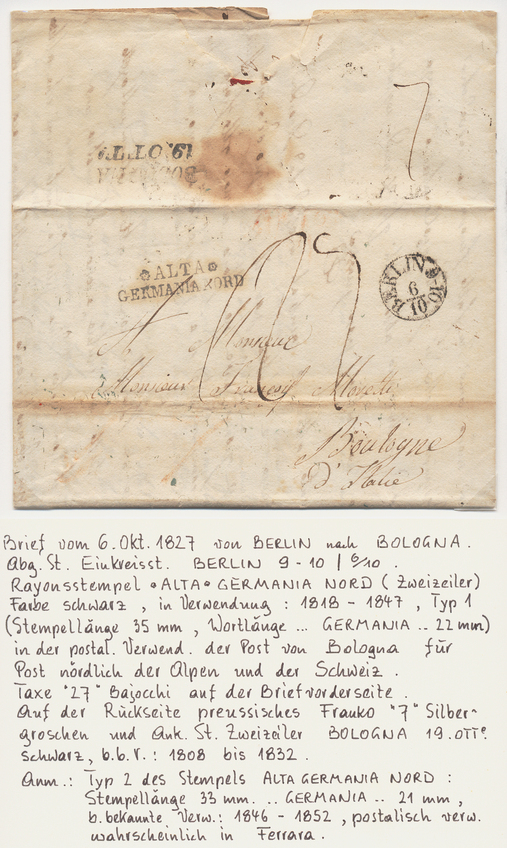 7
19. OTT.
BOLOGNA
ALTA
GERMANIA NORD
27
BERLIN 9-10
6
10
A Monsieur
Monsieur François
Boulogne
D'Italie
Brief vom 6. Okt. 1827 von BERLIN nach BOLOGNA.
Abg. St. Einkreisst. BERLIN 9-10 | 6/10.
Rayonsstempel •ALTA• GERMANIA NORD ( Zweizeiler)
Farbe schwarz , in Verwendung : 1818 - 1847 , Typ 1
(Stempellänge 35 mm , Wortlänge ... GERMANIA .. 22 mm)
in der postal. Verwend. der Post von Bologna für
Post nördlich der Alpen und der Schweiz .
Taxe "27" Bajocchi auf der Briefvorderseite .
Auf der Rückseite preussisches Franko "7" Silber-
groschen und Ank. St. Zweizeiler BOLOGNA 19. OTTe.
schwarz, b.b.V. : 1808 bis 1832 .
Anm.: Typ 2 des Stempels ALTA GERMANIA NORD :
Stempellänge 33 mm. .. GERMANIA .. 21 mm ,
b. bekannte Verw.: 1846 - 1852 , postalisch verw.
wahrscheinlich in Ferrara .